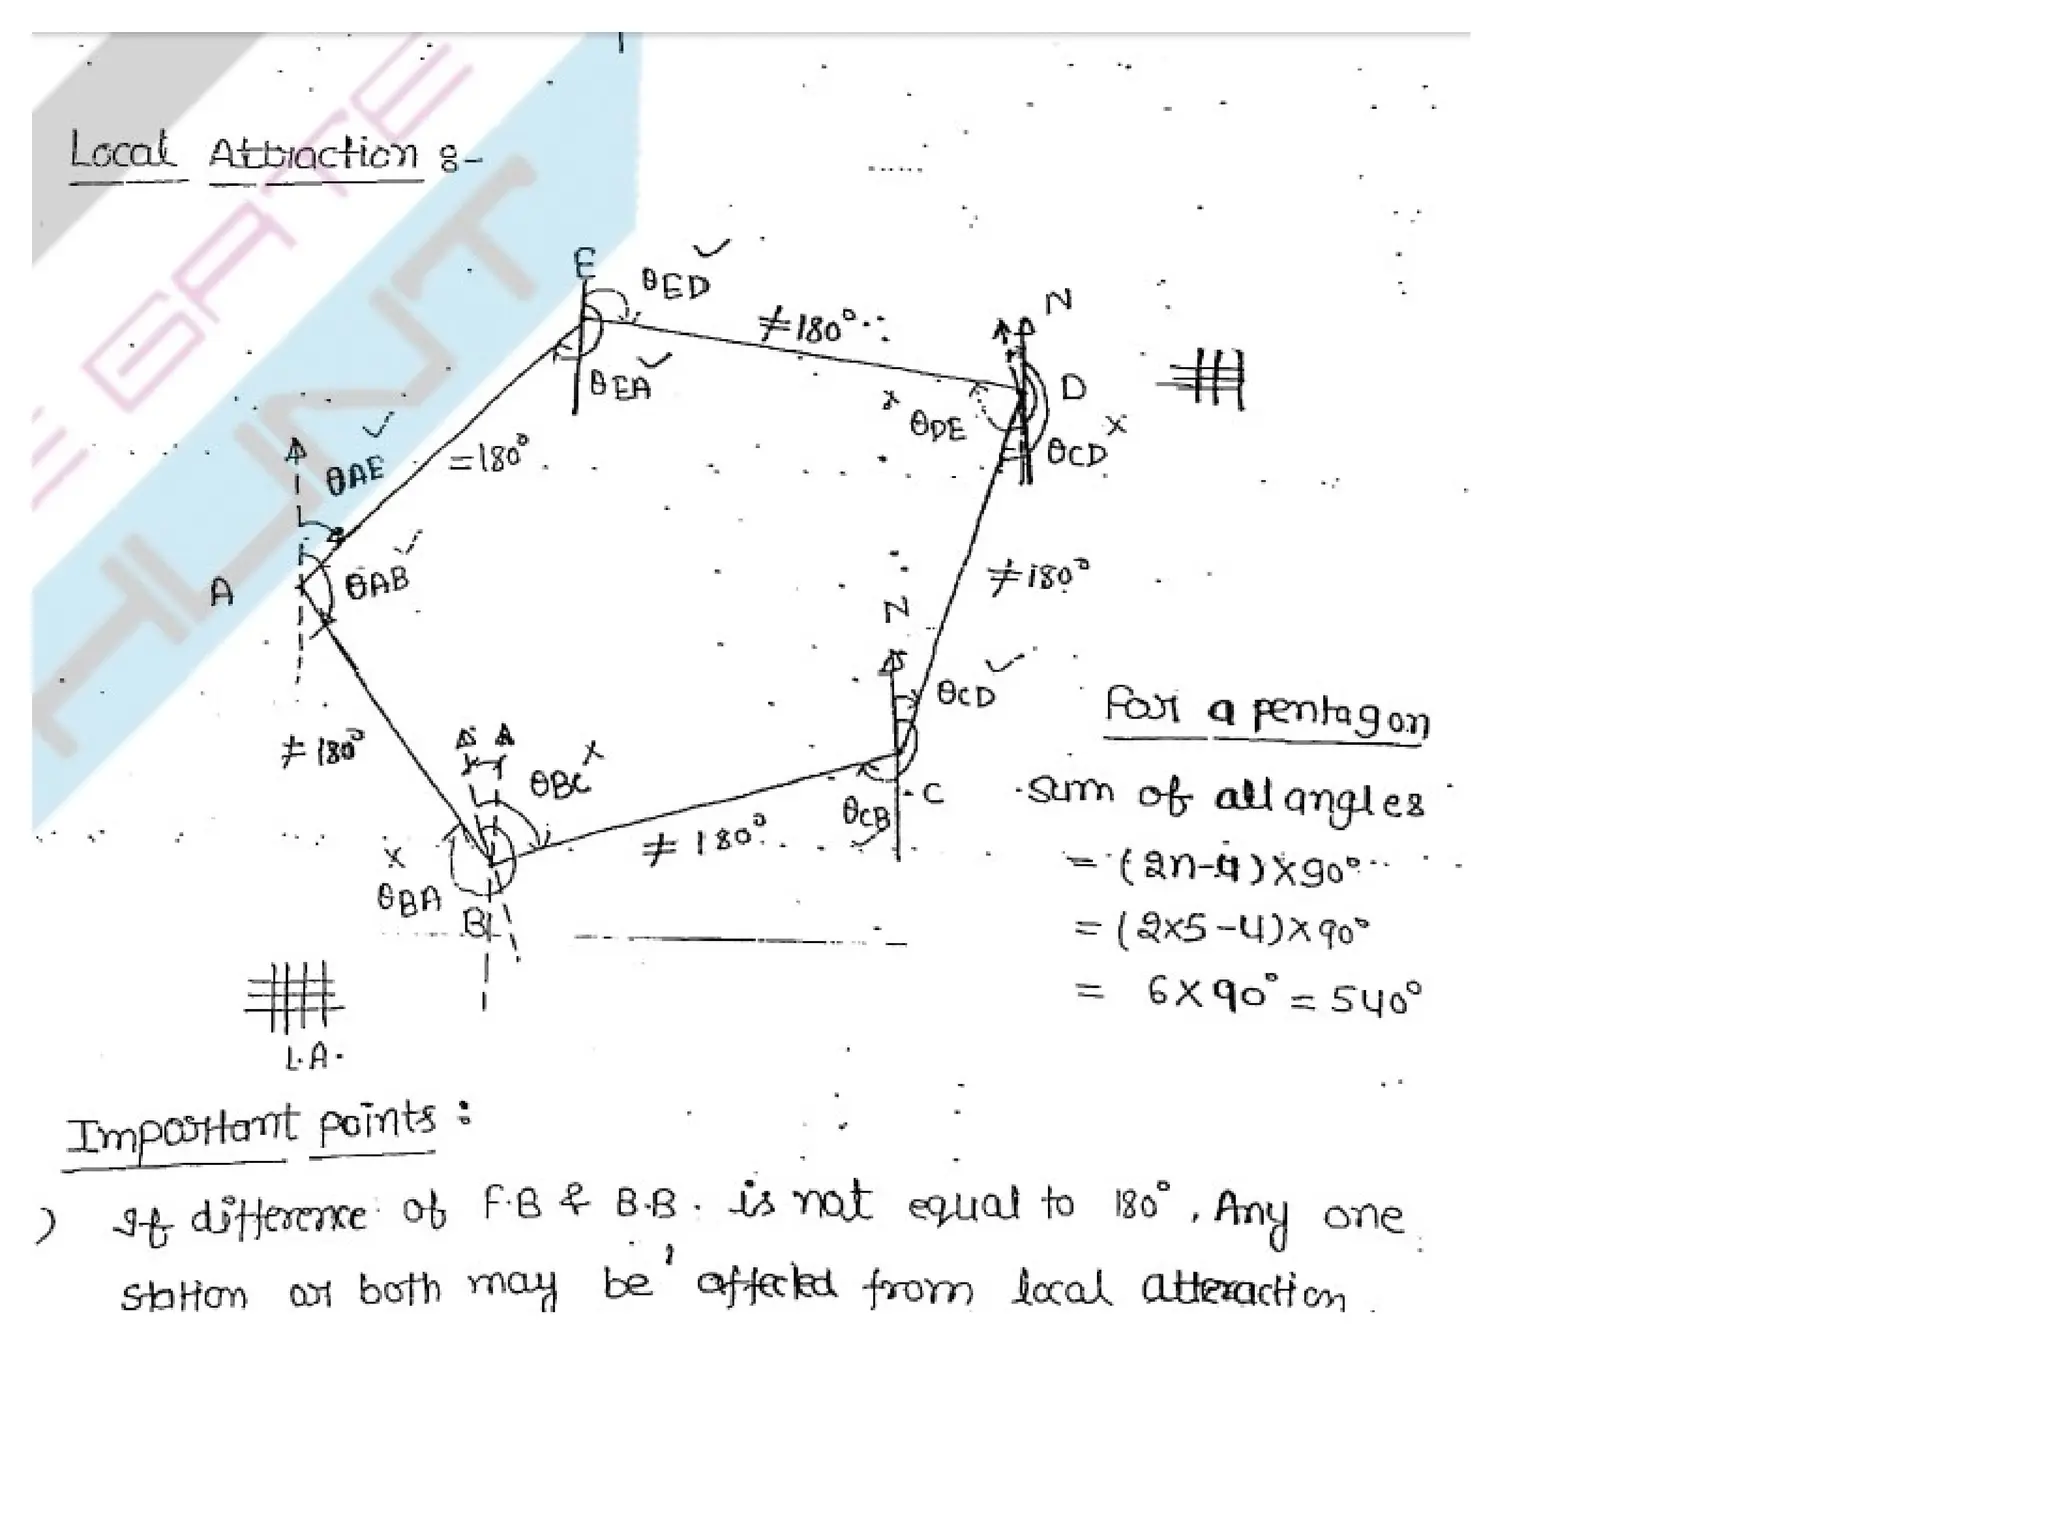 Local Attraction :-
E
θED ✓
≠180°
N
θEA ✓
D
x θDE
θCD x
θAE ✓
=180°
A
θAB ✓
≠180°
N
θCD ✓
≠180°
θBC x
θCB ✓
C
≠180°
x
θBA
B
L.A.
For a pentagon
sum of all angles
= (2n-4)×90°
= (2×5-4)×90°
= 6×90° = 540°
Important points :
) If difference of F.B & B.B. is not equal to 180°, Any one
station or both may be affected from local atteraction.
GATE
HUNT